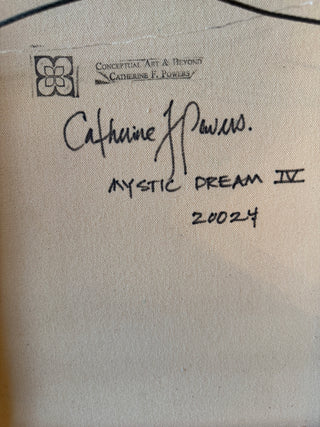 Conceptual Art & Beyond
Catherine F. Powers
Catherine F Powers.
MYSTIC DREAM IV
20024